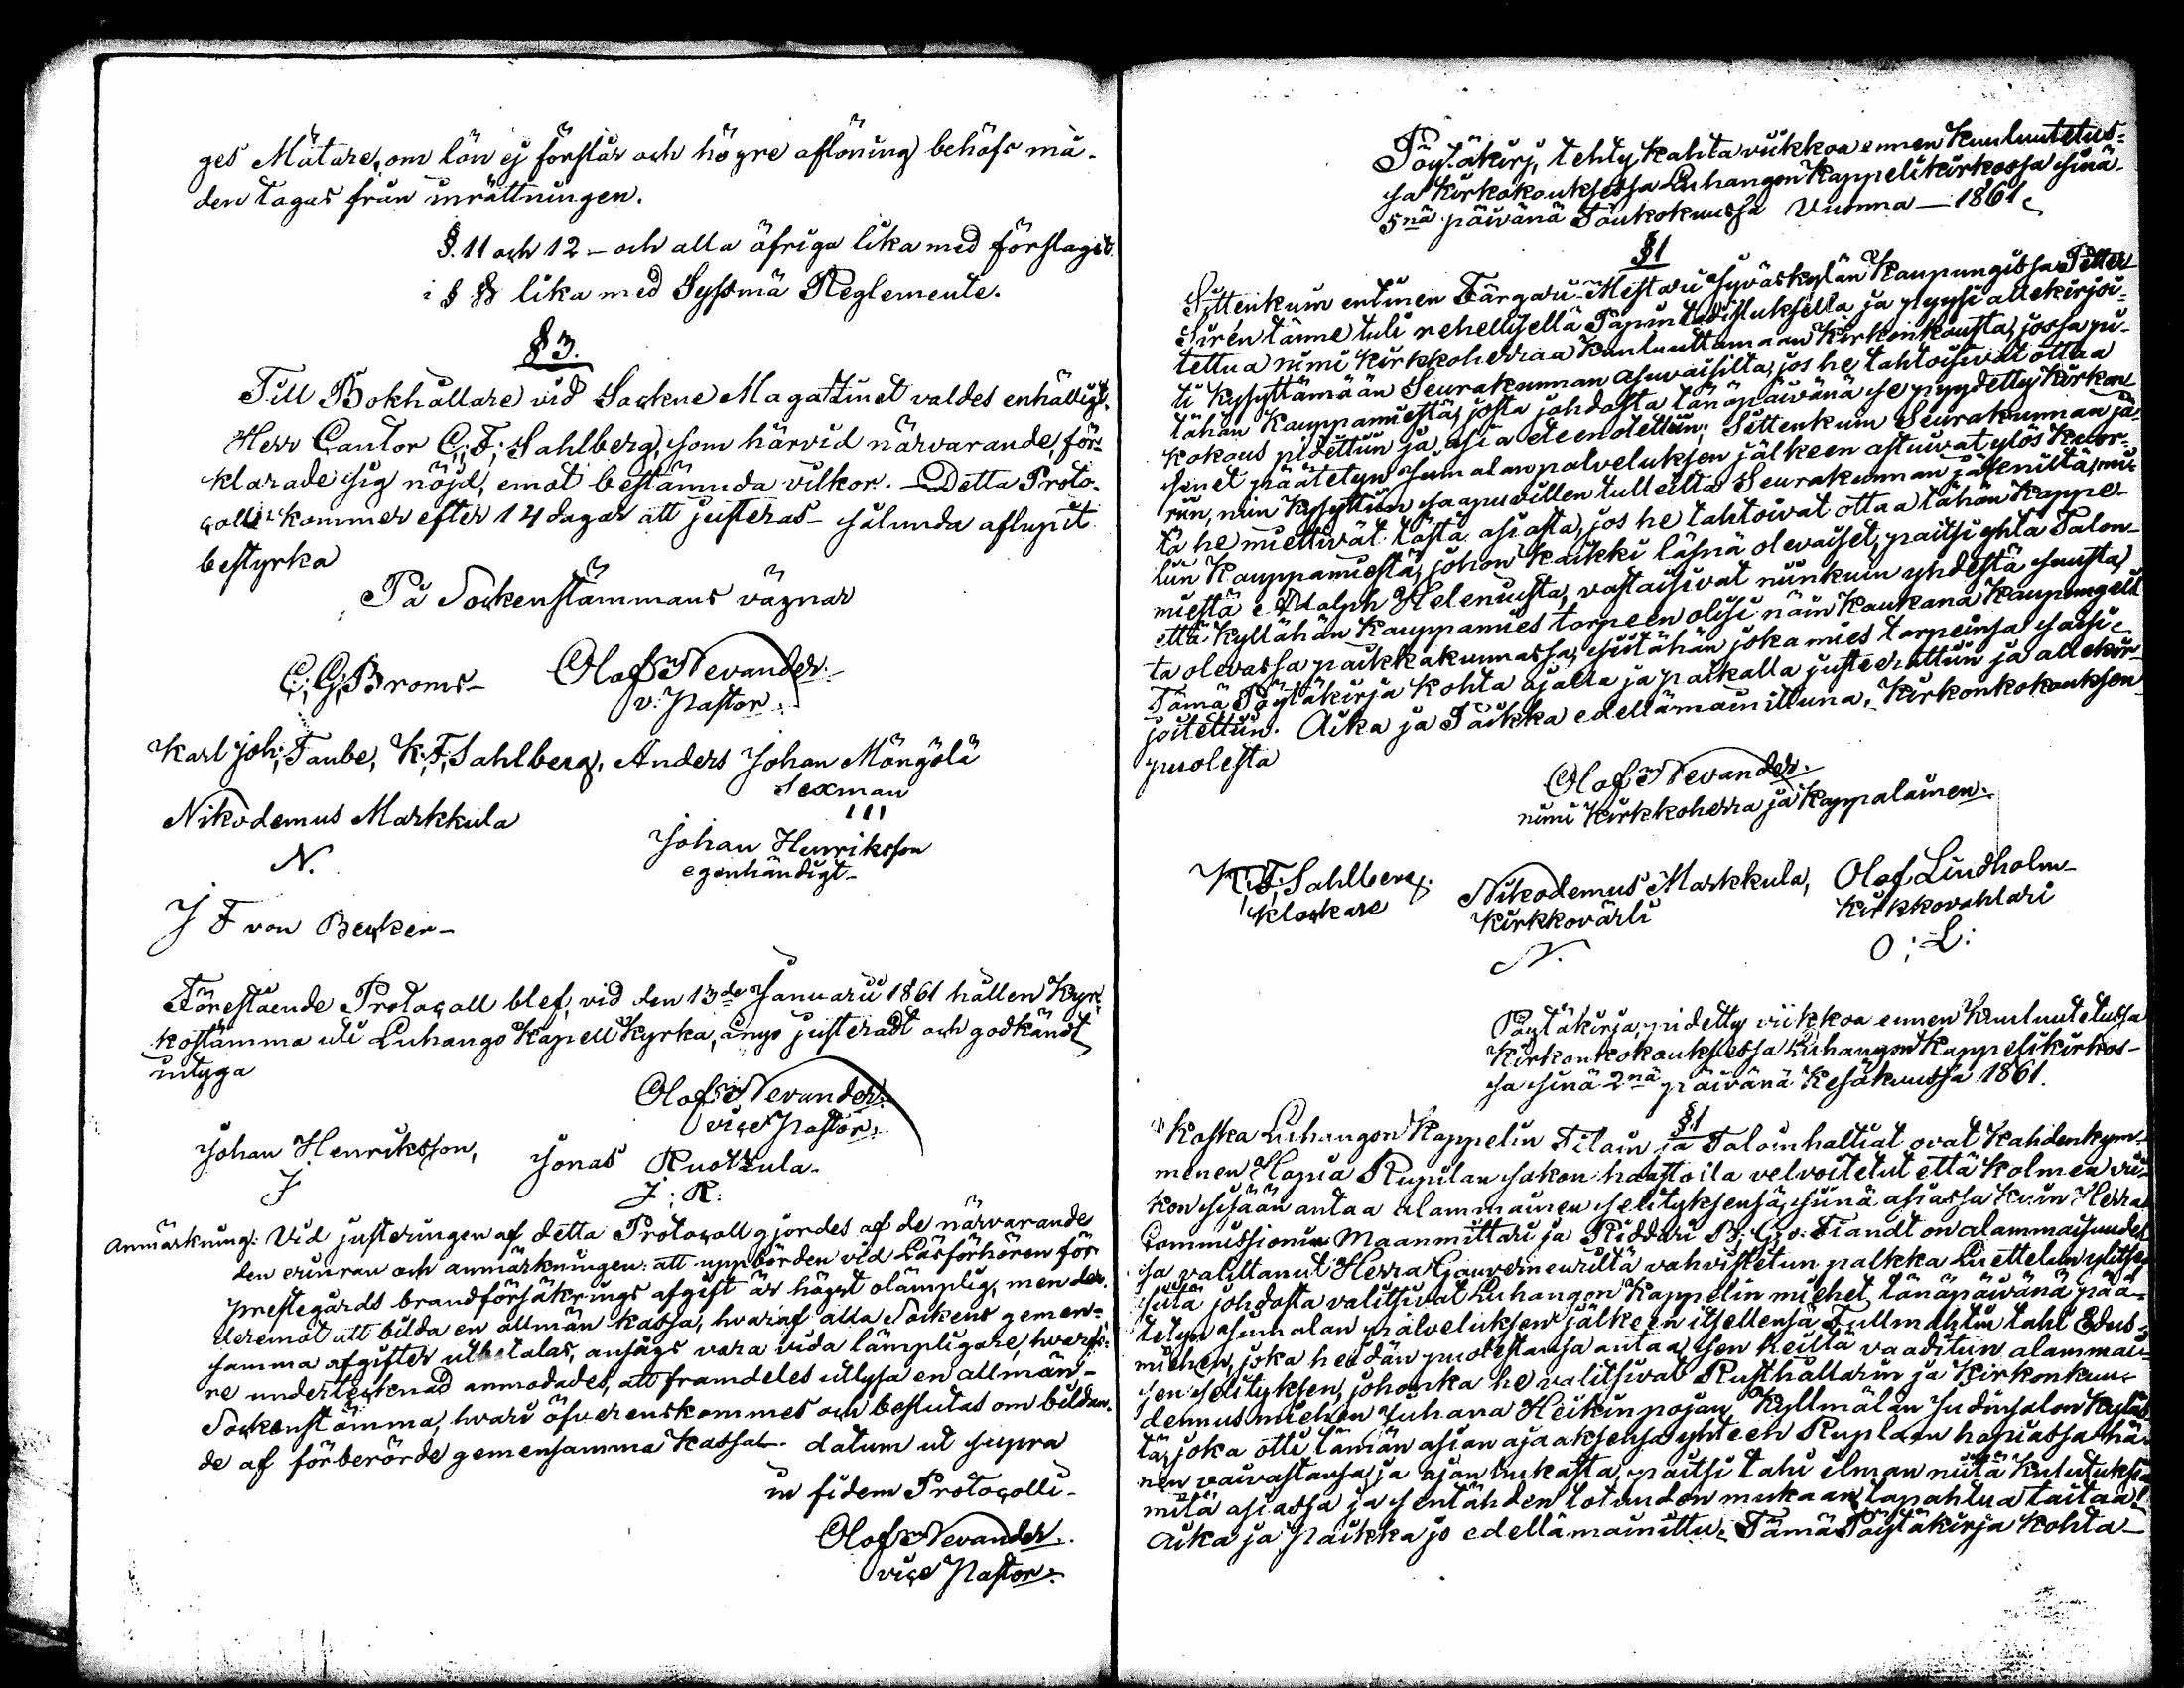 ges Mätare, om lön ej förslår och högre aflöning behöfs må-
den tagas från inrättningen.
§. 11 och 12 – och alla öfriga lika med förslaget
i § § lika med Sysmä Reglemente.
§ 3.
Till Bokhållare vid Sockne Magatzinet valdes enhälligt.
Herr Cantor C; F; Sahlberg, som härvid närvarande, för-
klarade sig nöjd, emot bestämda vilkor. – Detta Proto-
coll kommer efter 14 dagar att justeras – sålunda aflupit
bestyrka
På Sockenstämmans vägnar
C; G; Broms – Olof Nevander.
v. Pastor.
Karl Joh; Taube, K; F; Sahlberg, Anders Johan Möngölä
Sexman
Nikodemus Markkula
N.
Johan Henriksson
egenhändigt –
J F von Becker –
Förestående Protocoll blef, vid den 13de Januarii 1861 hållen Kyr-
kostämma uti Luhango Kapell Kyrka, ånyo justeradt och godkändt
intyga
Olof Nevander.
vice Pastor.
Johan Henriksson, Jonas Ruottula.
J J; R:
Anmärkning: Vid justeringen af detta Protocoll gjordes af de närvarande
den erinran och anmärkningen: att uppbörden vid Läsförhören för
prestegårds brandförsäkrings afgift är högst olämplig, men der-
deremot att bilda en allmän kassa, hvaraf alla Sockens gemen-
samma afgifter utbetalas, ansågs vara vida lämpligare, hvarfö-
re undertecknad anmodades, att framdeles utlysa en allmän-
Sockenstämma, hvari öfverenskommes och beslutas om bildan-
de af förberörde gemensamma Kassa – datum ut supra
in fidem Protocolli –
Olof Nevander.
vice Pastor.
Pöytäkirj, tehty kahta viikkoa ennen Kuuluutetus-
sa Kirkokouksessa Luhangon Kappelikirkossa sinä
5nä päivänä Toukokuussa Vuonna – 1861
§ 1
Sittenkuin entinen Färgäri-Mestari Jyväskylän Kaupungissa Petter
Sirén tänne tuli rehellisellä Papintodistuksella ja pyysi allekirjoi-
tettua nimi Kirkkoherraa Kuuluuttamaan Kirkonkousta, jossa pi-
ti Kysyttämään Seurakunnan asuvaisilta, jos he tahtoisivat ottaa
tähän Kauppamiestä, josta johdosta tänäpäivänä se pyydetty Kirkon
kokous pidettiin ja asia eteenotettiin; Sittenkuin Seurakunnan jä-
senet päätetyn Jumalanpalveluksen jälkeen astuivat ylös Kuor-
riin, niin Kysyttiin saapuvillen tulleilta Seurakunnan jäseniltä, mi-
tä he miettivät tästä asiasta, jos he tahtoivat ottaa tähän Kappe-
liin Kauppamiestä, johon Kaikki läsnä olevaiset, paitsi yhtä Talon-
miestä Adolph Heleniusta, vastaisivat niinkuin yhdestä suusta,
että Kyllähän Kauppamies tarpeen olisi näin Kaukana Kaupungeis-
ta olevassa paikkakunnassa, siitähän joka mies tarpeinsa saisi –
Tämä Pöytäkirja Kohta ajalla ja paikalla justeerattiin ja allekir-
joitettiin. Aika ja Paikka edellämainittuna. Kirkonkokouksen
puolesta
Olof Nevander.
nimi Kirkkoherra ja Kappalainen.
K; F; Sahlberg. Nikodemus Markkula, Olof Lindholm –
Klockare Kirkkovärti Kirkkovahtari
N. O; L:
Pöytäkirja, pidetty viikkoa ennen Kuuluutetussa
Kirkonkokouksessa Luhangon Kappelikirkos-
sa sinä 2nä päivänä Kesäkuussa 1861.
§ 1
Koska Luhangon Kappelin Tilain ja Taloinhaltiat ovat Kahdenkym-
menen Hopia Ruplan sakon haastolla velvoitetut että Kolmen vii-
kon sisään antaa alammainen selityksensä, siinä asiassa Kuin Herra
Commissionin Maanmittari ja Riddari B; G; v: Fiandt on alammaisuudes-
sa valittanut Herra Gouverneurilta vahvistetun palkka Luettelun ylitse,
siitä johdosta valitsivat Luhangon Kappelin miehet tänäpäivänä pää-
tetyn Jumalan palveluksen jälkeen itsellensä Fullmahtin tahi Edus-
miehen, joka heidän puolestansa antaa sen Keiltä vaaditun alammai-
sen selityksen, johonka he valitsivat Rusthållarin ja Kirkonkuu-
dennusmiehen Juhana Heikinpojan Kyllmälän Judinsalon Kyläs-
tä, joka otti tämän asian ajaaksensa yhteen Ruplaan hopiassa hä-
nen vaivastansa ja ajan hukasta, paitsi tahi ilman niitä Kulutuksia
mitä asiassa ja sentähden totuuden mukaan tapahtua taitaa!
Aika ja Paikka jo edellämainittu. Tämä Pöytäkirja Kohta –